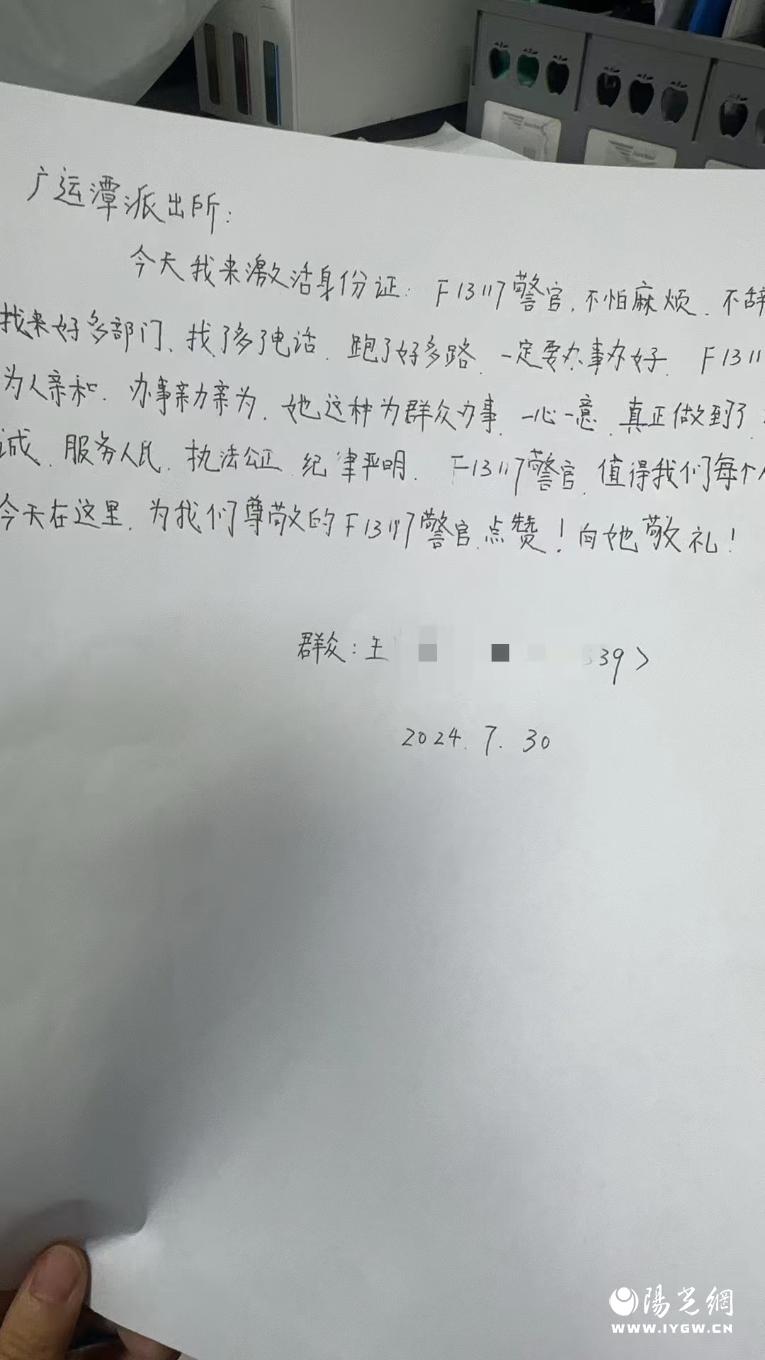 广运潭派出所:
今天我来激活身份证: F13117警官、不怕麻烦、不辞
找来好多部门、找了多了电话、跑了好多路、一定要办事办好、F1311
为人亲和、办事亲力亲为、她这种为群众办事、一心一意、真正做到了、
诚、服务人民、执法公正、纪律严明、F13117警官、值得我们每个
今天在这里、为我们尊敬的F13117警官、点赞!向她敬礼!
群众:王 539>
2024.7.30
陽光網
WWW.IYGW.CN